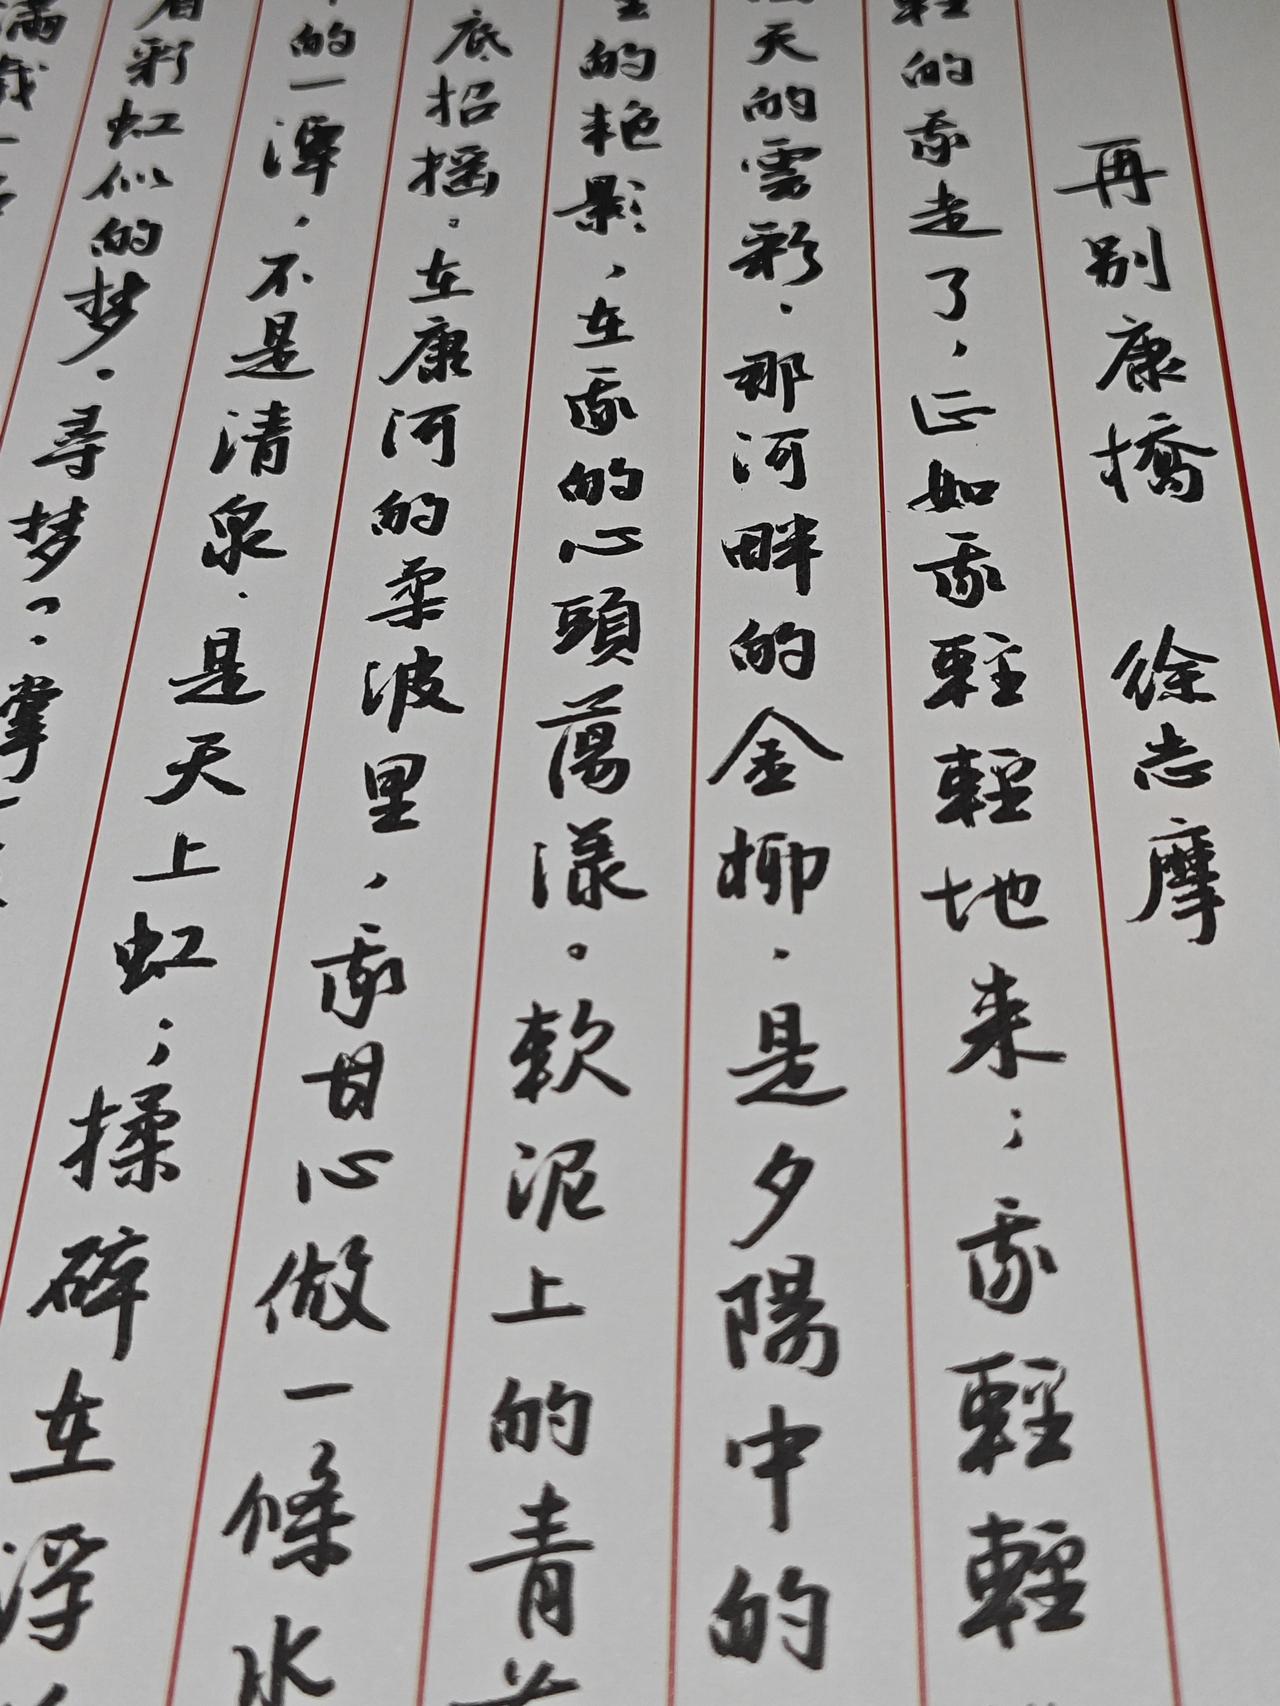 再别康橋 徐志摩
輕的我走了，正如我輕輕地来；我輕輕
天的雲彩，那河畔的金柳，是夕陽中的
的艳影，在我的心頭蕩漾。軟泥上的青
底招摇。在康河的柔波里，我甘心做一條水
的一潭，不是清泉，是天上虹；揉碎在浮
着彩虹似的梦。尋梦？掌一
满载一